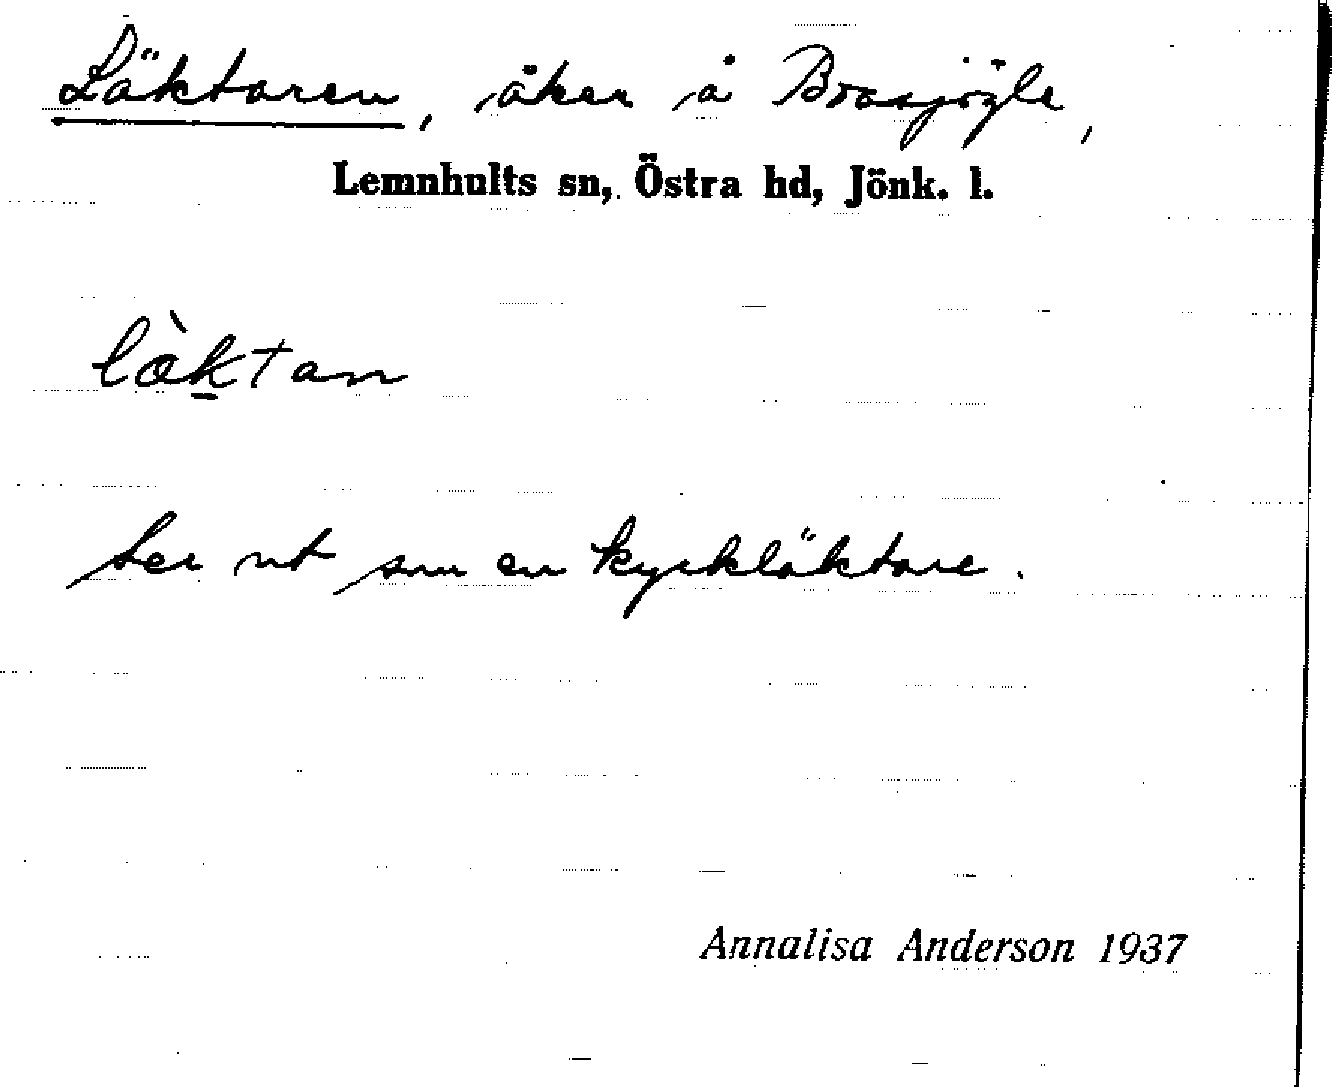 Läktaren, åker å Brasjögle,
Lemnhults sn, Östra hd, Jönk. l.
lä̀k̠tan
ser ut som en kyrkläktare.
Annalisa Anderson 1937